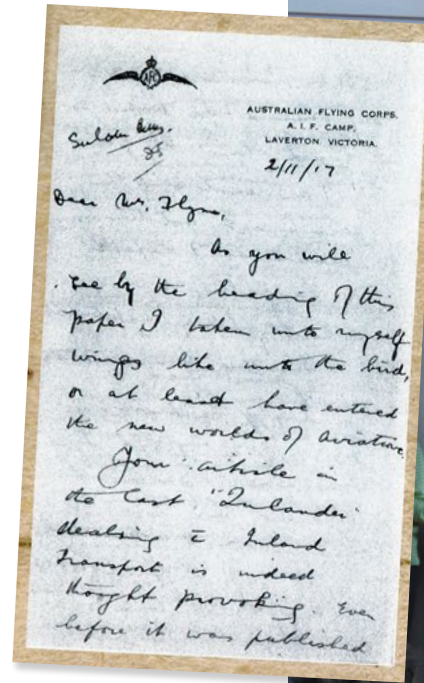 AUSTRALIAN FLYING CORPS.
A. I. F. CAMP,
LAVERTON, VICTORIA.
2/11/17
Dear Mr. Flynn,
As you will
see by the heading of this
paper I taken unto myself
wings like unto the bird,
or at least have entered
the new worlds of aviation.
Your article in
the last "Inlander"
dealing c̄ Inland
Transport is indeed
thought provoking. Even
before it was published